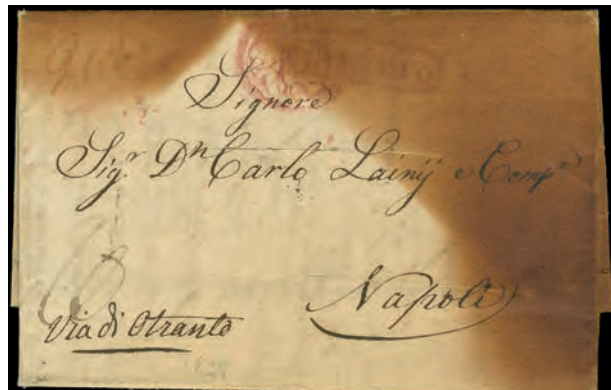 Signore
Sig.r Dn Carlo Lainÿ e Comp.e
Napoli
Via di Otranto